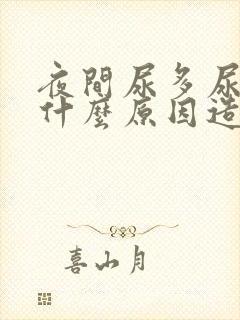 夜間尿多尿
什麼原因造
喜山月